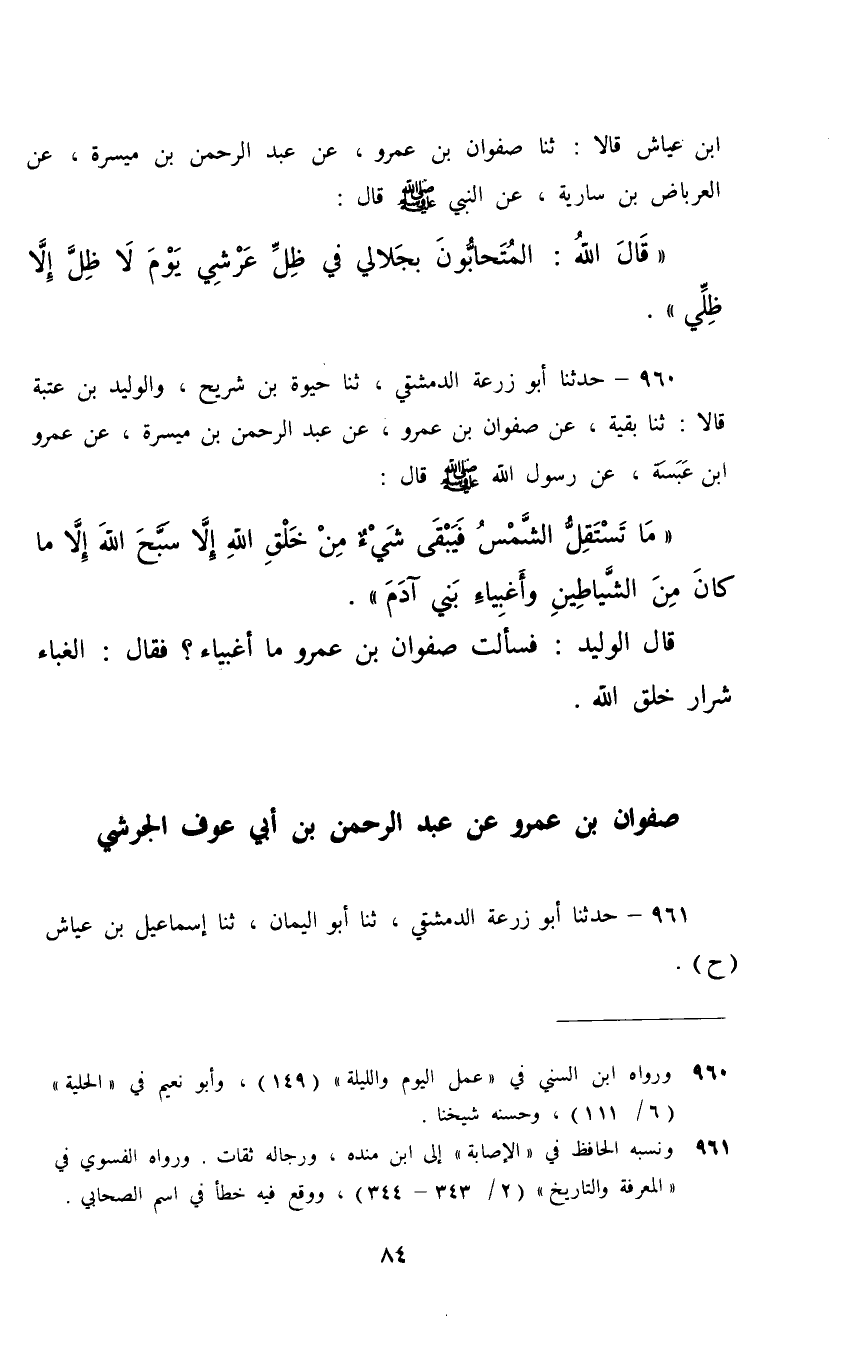 ابن عياش قالا : ثنا صفوان بن عمرو ، عن عبد الرحمن بن ميسرة ، عن
العرباض بن سارية ، عن النبي ﷺ قال :
« قَالَ اللهُ : المُتَحابُّونَ بجَلالي في ظِلِّ عَرْشِي يَوْمَ لَا ظِلَّ إِلَّا
ظِلِّي » .
٩٦٠ – حدثنا أبو زرعة الدمشقي ، ثنا حيوة بن شريح ، والوليد بن عتبة
قالا : ثنا بقية ، عن صفوان بن عمرو ، عن عبد الرحمن بن ميسرة ، عن عمرو
ابن عَبَسَة ، عن رسول الله ﷺ قال :
« مَا تَسْتَقِلُّ الشَّمْسُ فَيَبْقَى شَيْءٌ مِنْ خَلْقِ اللهِ إِلَّا سَبَّحَ اللهَ إِلَّا ما
كانَ مِنَ الشَّياطِينِ وأَغبِياءِ بَني آدَمَ » .
قال الوليد : فسألت صفوان بن عمرو ما أغبياء ؟ فقال : الغباء
شرار خلق الله .
صفوان بن عمرو عن عبد الرحمن بن أبي عوف الجرشي
٩٦١ – حدثنا أبو زرعة الدمشقي ، ثنا أبو اليمان ، ثنا إسماعيل بن عياش
(ح) .
٩٦٠ ورواه ابن السني في «عمل اليوم والليلة» (١٤٩) ، وأبو نعيم في «الحلية»
(٦/ ١١١) ، وحسنه شيخنا .
٩٦١ ونسبه الحافظ في «الإصابة» إلى ابن منده ، ورجاله ثقات . ورواه الفسوي في
«المعرفة والتاريخ» (٢/ ٣٤٣ – ٣٤٤) ، ووقع فيه خطأ في اسم الصحابي .
٨٤